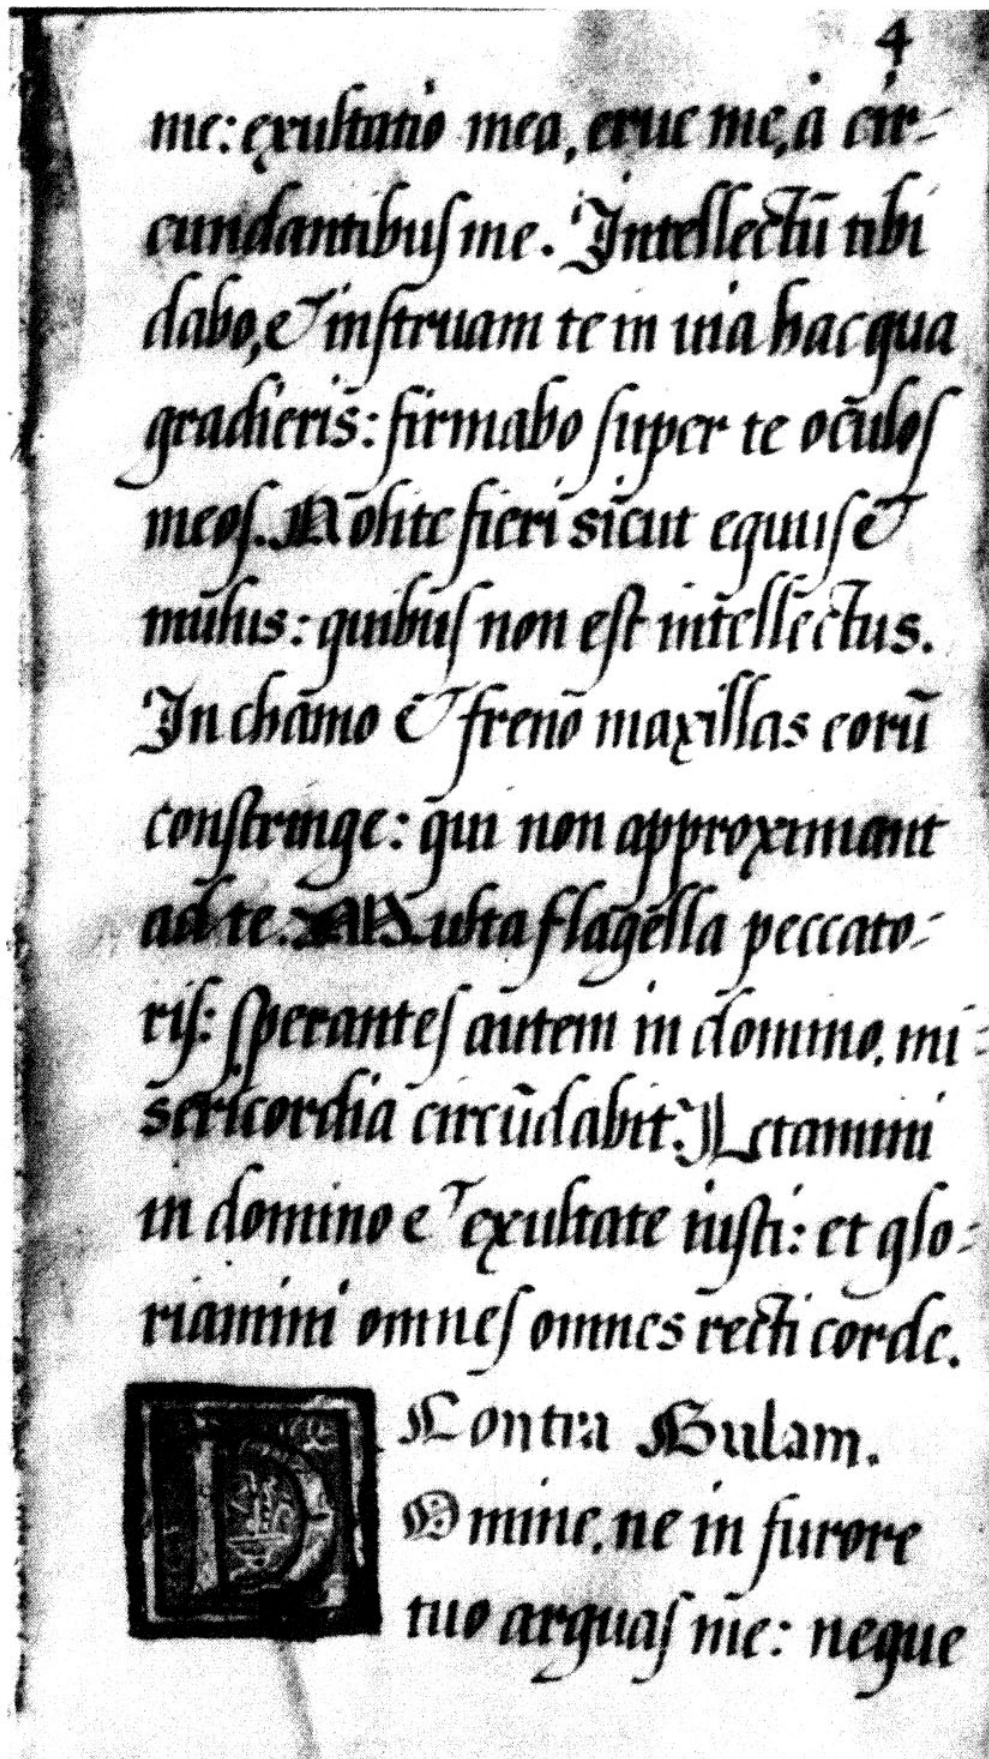 4
me: exultatio mea, erue me, a cir-
cundantibus me. Intellectū tibi
dabo, et instruam te in uia hac qua
gradieris: firmabo super te oculos
meos. Nolite fieri sicut equus et
mulus: quibus non est intellectus.
In chamo et freno maxillas eorū
constringe: qui non approximant
ad te. Multa flagella peccato-
ris: sperantes autem in domino, mi-
sericordia circūdabit. Letamini
in domino et exultate iusti: et glo-
riamini omnes omnes recti corde.
Contra Gulam.
DOmine, ne in furore
tuo arguas me: neque